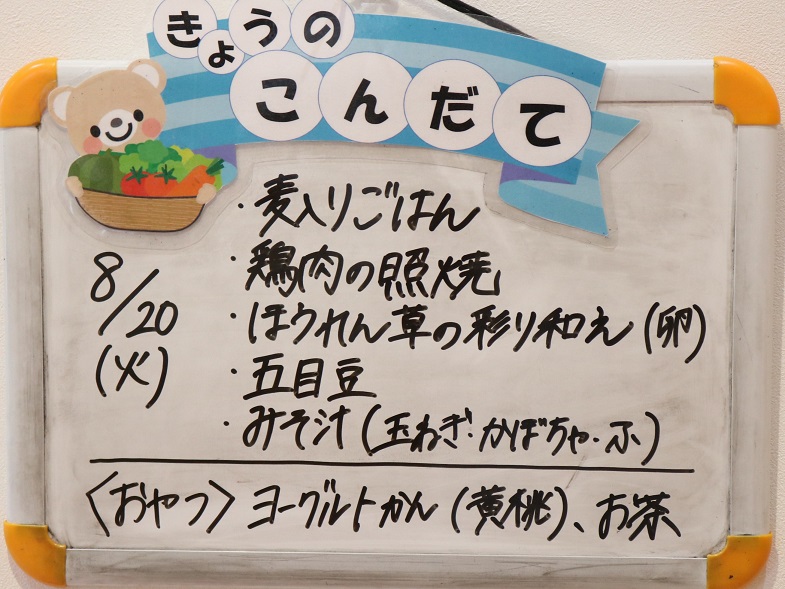 きょうの
こんだて
・麦入りごはん
・鶏肉の照焼
8/20
(火)
・ほうれん草の彩り和え(卵)
・五目豆
・みそ汁(玉ねぎ・かぼちゃ・ふ)
〈おやつ〉ヨーグルトかん(黄桃)、お茶